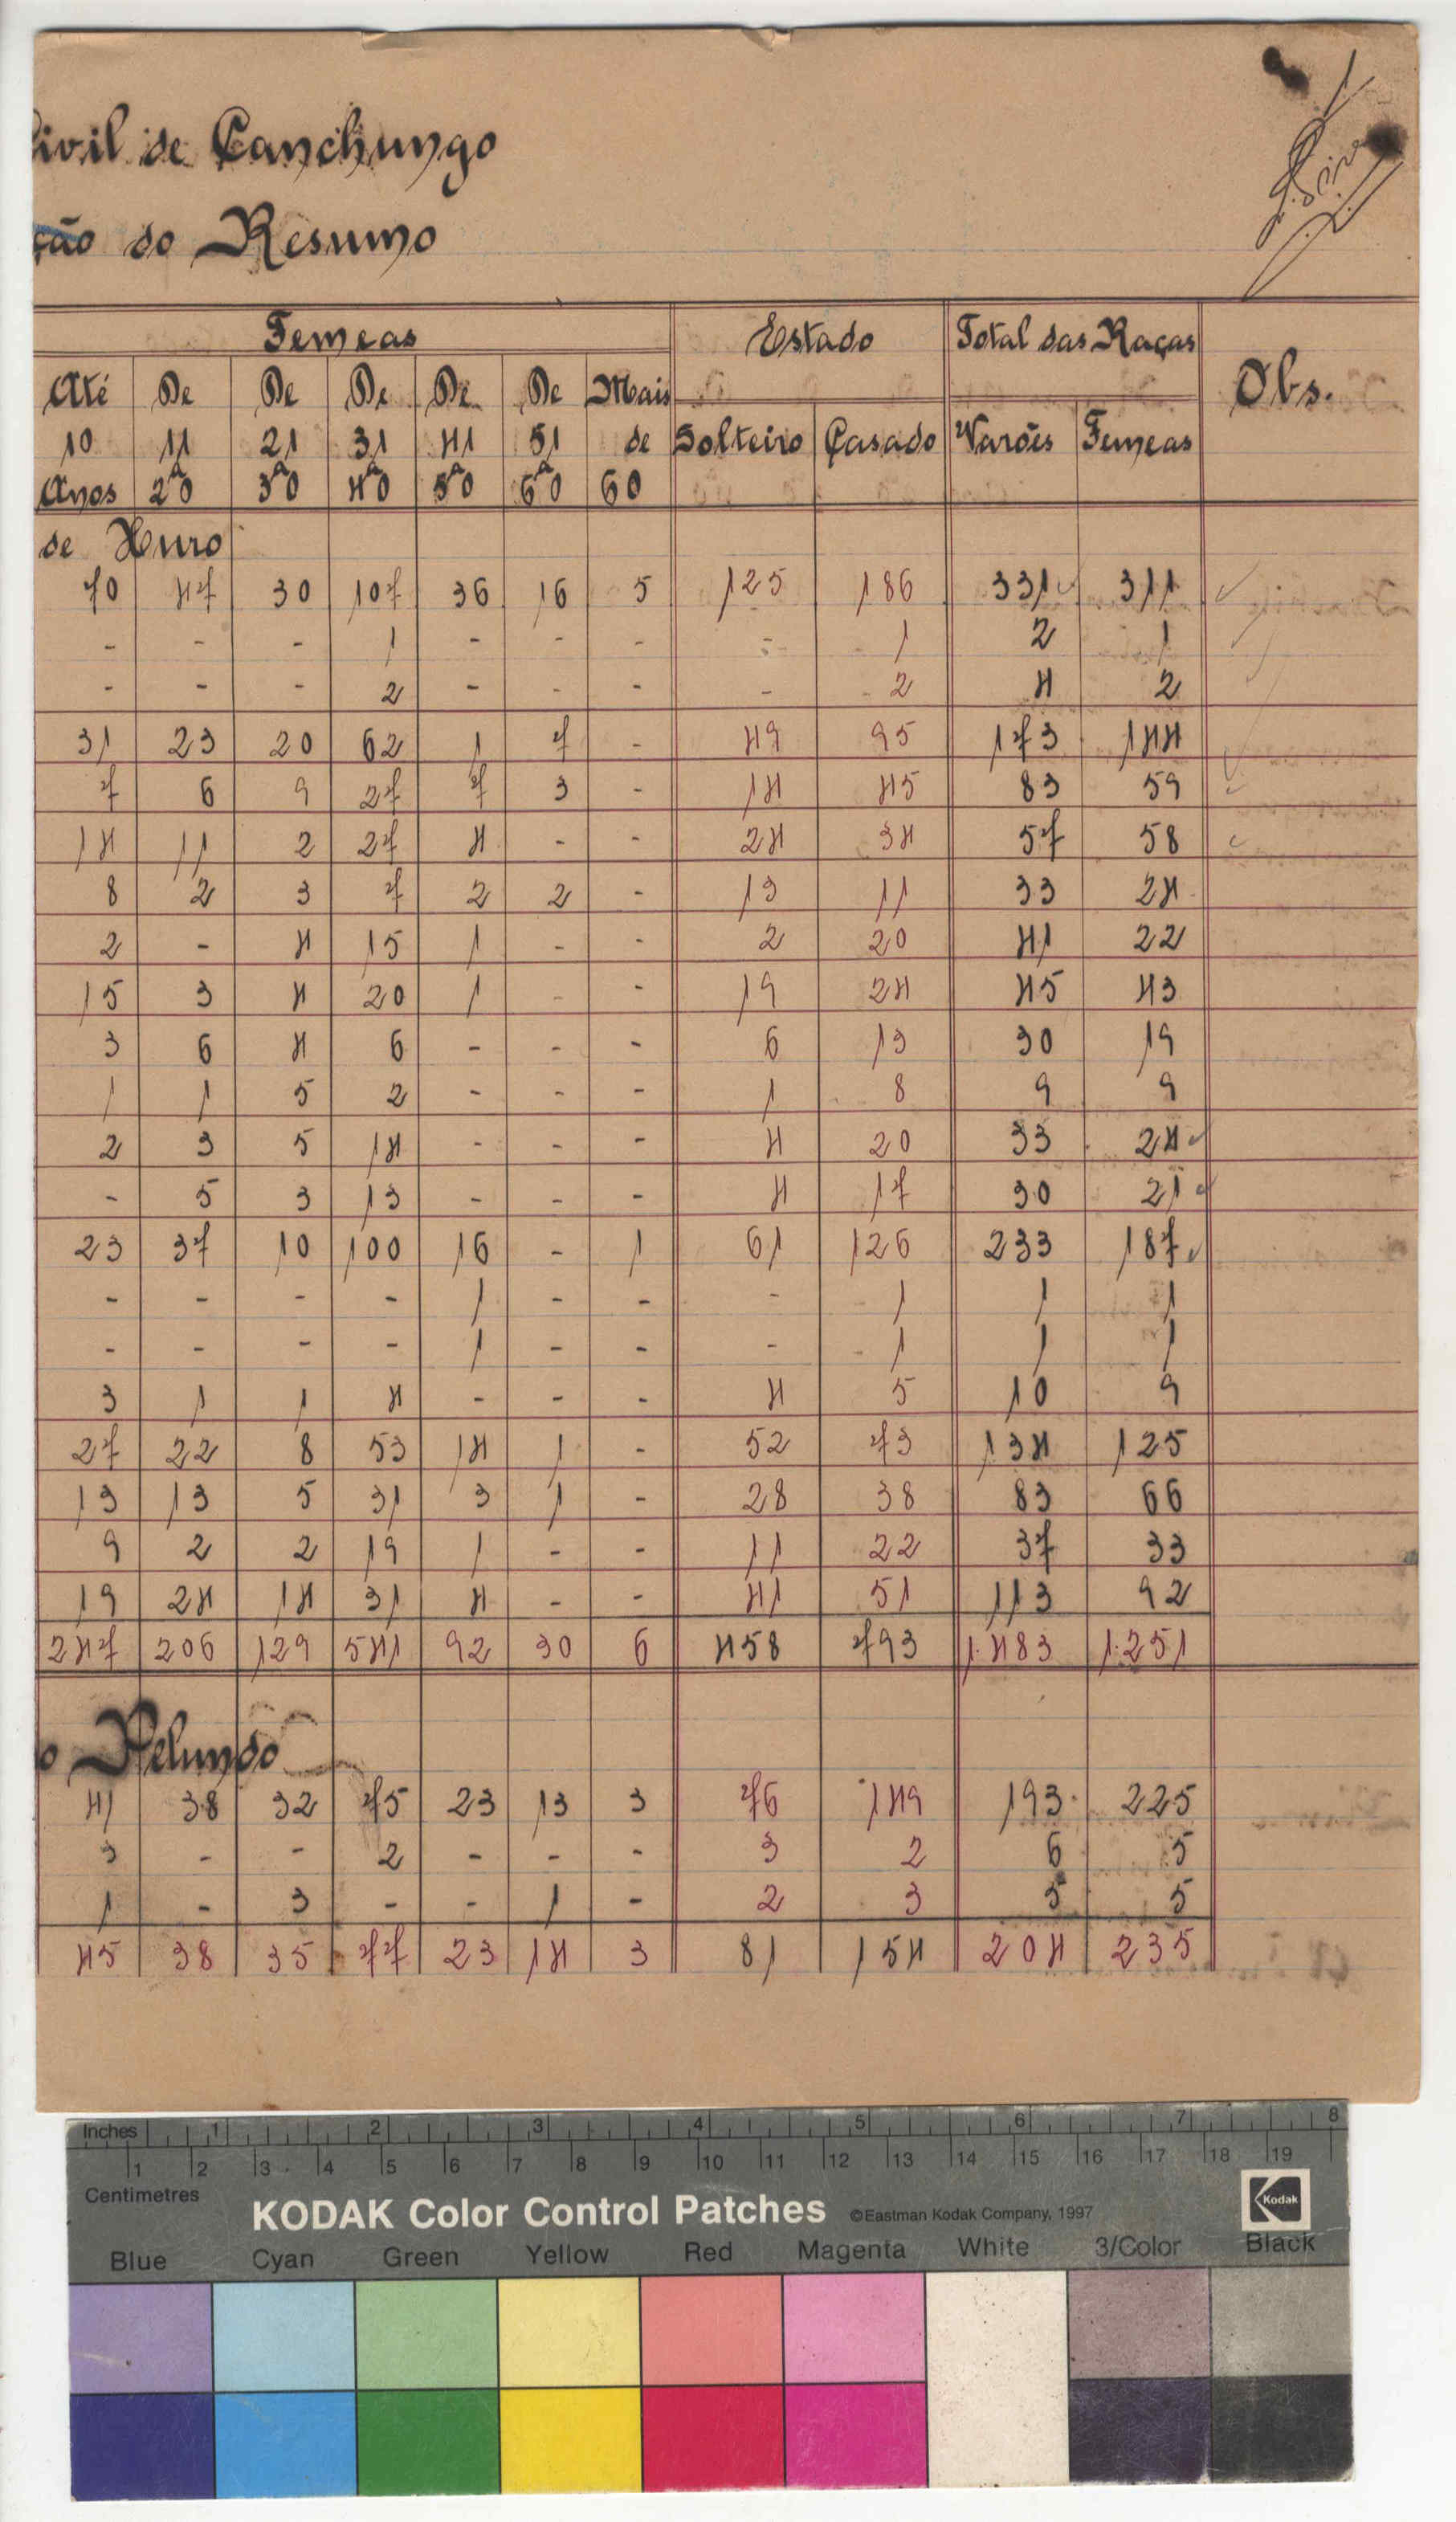 ivil de Canchungo
ção do Resumo
Femeas Estado Total das Raças Obs.
Até De De De De De Mais
10 11 21 31 41 51 de Solteiro Casado Varões Femeas
Anos a 20 a 30 a 40 a 50 a 60 60
de Xuro
70 47 30 107 36 16 5 125 186 331 311
- - - 1 - - - - 1 2 1
- - - 2 - - - - 2 4 2
31 23 20 62 1 7 - 49 95 173 144
7 6 9 27 7 3 - 14 45 83 59
14 11 2 27 4 - - 24 34 57 58
8 2 3 7 2 2 - 13 11 33 24
2 - 4 15 1 - - 2 20 41 22
15 3 4 20 1 - - 19 24 45 43
3 6 4 6 - - - 6 13 30 19
1 1 5 2 - - - 1 8 9 9
2 3 5 14 - - - 4 20 33 24
- 5 3 13 - - - 4 17 30 21
23 37 10 100 16 - 1 61 126 233 187
- - - - 1 - - - 1 1 1
- - - - 1 - - - 1 1 1
3 1 1 4 - - - 4 5 10 9
27 22 8 53 14 1 - 52 73 134 125
13 13 5 31 3 1 - 28 38 83 66
9 2 2 19 1 - - 11 22 37 33
19 24 14 31 4 - - 41 51 113 92
247 206 129 541 92 30 6 458 793 1.483 1.251
o Pelundo
41 38 32 75 23 13 3 76 149 193 225
3 - - 2 - - - 3 2 6 5
1 - 3 - - 1 - 2 3 5 5
45 38 35 77 23 14 3 81 154 204 235
Inches 1 2 3 4 5 6 7 8
1 2 3 4 5 6 7 8 9 10 11 12 13 14 15 16 17 18 19
Centimetres
KODAK Color Control Patches ©Eastman Kodak Company, 1997 Kodak
Blue Cyan Green Yellow Red Magenta White 3/Color Black